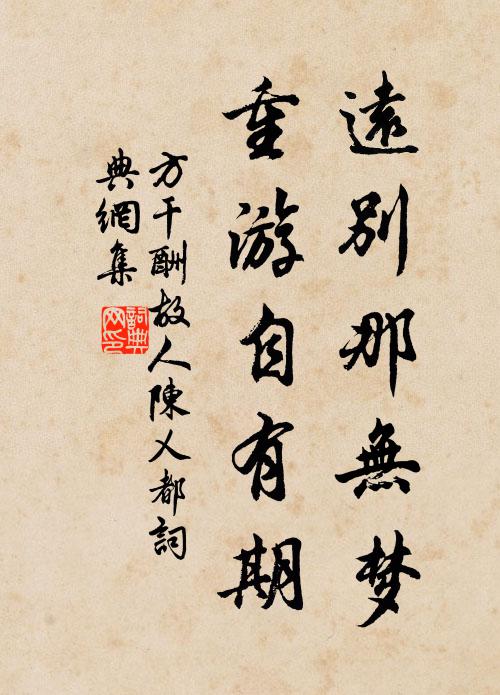 遠别那無梦
重游自有期
方干酬故人陳乂都詞
典網集
詞典
网印